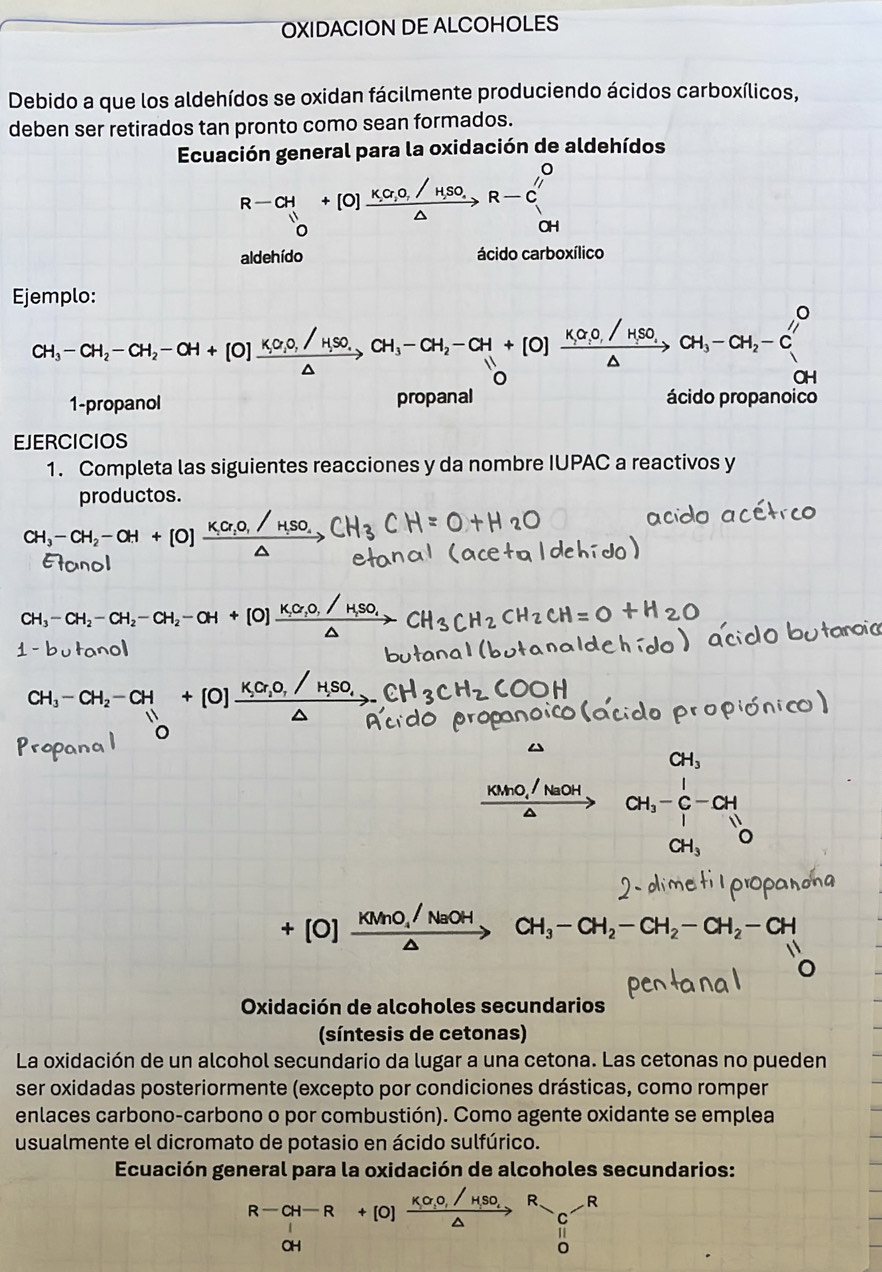 OXIDACION DE ALCOHOLES
Debido a que los aldehídos se oxidan fácilmente produciendo ácidos carboxílicos,
deben ser retirados tan pronto como sean formados.
Ecuación general para la oxidación de aldehídos
R — CH + [O] K₂Cr₂O₇ / H₂SO₄ → R — C
O
O
Δ
OH
aldehído ácido carboxílico
Ejemplo:
CH₃ – CH₂ – CH₂ – OH + [O] K₂Cr₂O₇ / H₂SO₄ → CH₃ – CH₂ – CH + [O] K₂Cr₂O₇ / H₂SO₄ → CH₃ – CH₂ – C
O
Δ O Δ OH
1-propanol propanal ácido propanoico
EJERCICIOS
1. Completa las siguientes reacciones y da nombre IUPAC a reactivos y
productos.
CH₃ – CH₂ – OH + [O] K₂Cr₂O₇ / H₂SO₄ → CH3 CH = O + H2O acido acético
Δ
Etanol etanal (acetaldehído)
CH₃ – CH₂ – CH₂ – CH₂ – OH + [O] K₂Cr₂O₇ / H₂SO₄ → CH3 CH2 CH2 CH = O + H2O
Δ
1-butanol butanal (butanaldehído) ácido butanoic
CH₃ – CH₂ – CH + [O] K₂Cr₂O₇ / H₂SO₄ → CH3CH2 COOH
O Δ
Propanal Ácido propanoico (ácido propiónico)
Δ
CH₃
KMnO₄ / NaOH → CH₃ – C – CH
Δ O
CH₃
2-dimetilpropanona
+ [O] KMnO₄ / NaOH → CH₃ – CH₂ – CH₂ – CH₂ – CH
Δ O
pentanal
Oxidación de alcoholes secundarios
(síntesis de cetonas)
La oxidación de un alcohol secundario da lugar a una cetona. Las cetonas no pueden
ser oxidadas posteriormente (excepto por condiciones drásticas, como romper
enlaces carbono-carbono o por combustión). Como agente oxidante se emplea
usualmente el dicromato de potasio en ácido sulfúrico.
Ecuación general para la oxidación de alcoholes secundarios:
R — CH — R + [O] K₂Cr₂O₇ / H₂SO₄ → R C R
OH Δ O